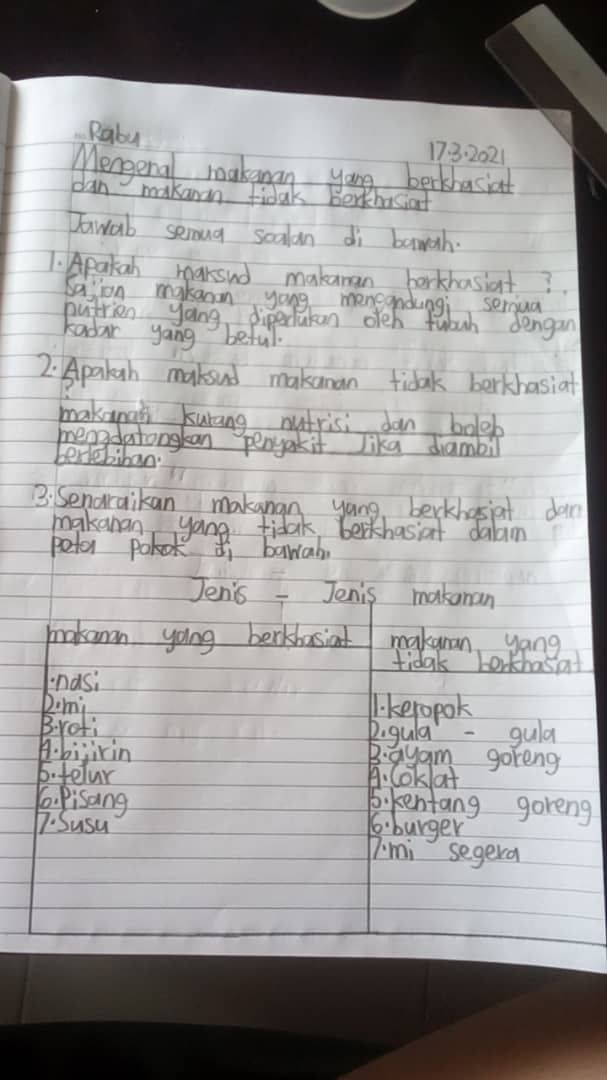 Rabu
17.3.2021
Mengenal makanan yang berkhasiat
dan makanan tidak berkhasiat
Jawab semua soalan di bawah.
1. Apakah maksud makanan berkhasiat ?
Sajian makanan yang mengandungi semua
nutrien yang diperlukan oleh tubuh dengan
kadar yang betul.
2. Apakah maksud makanan tidak berkhasiat
?
makanan kurang nutrisi dan boleh
mengdatongkan penyakit Jika diambil
berlebihan.
3. Senaraikan makanan yang berkhasiat dan
makanan yang tidak berkhasiat dalam
peta pokok di bawah.
Jenis - Jenis makanan
makanan yang berkhasiat
makanan yang
tidak berkhasat
1. nasi
2. mi
3. roti
4. bijirin
5. telur
6. Pisang
7. Susu
1. keropok
2. gula - gula
3. ayam goreng
4. Coklat
5. kentang goreng
6. burger
7. mi segera